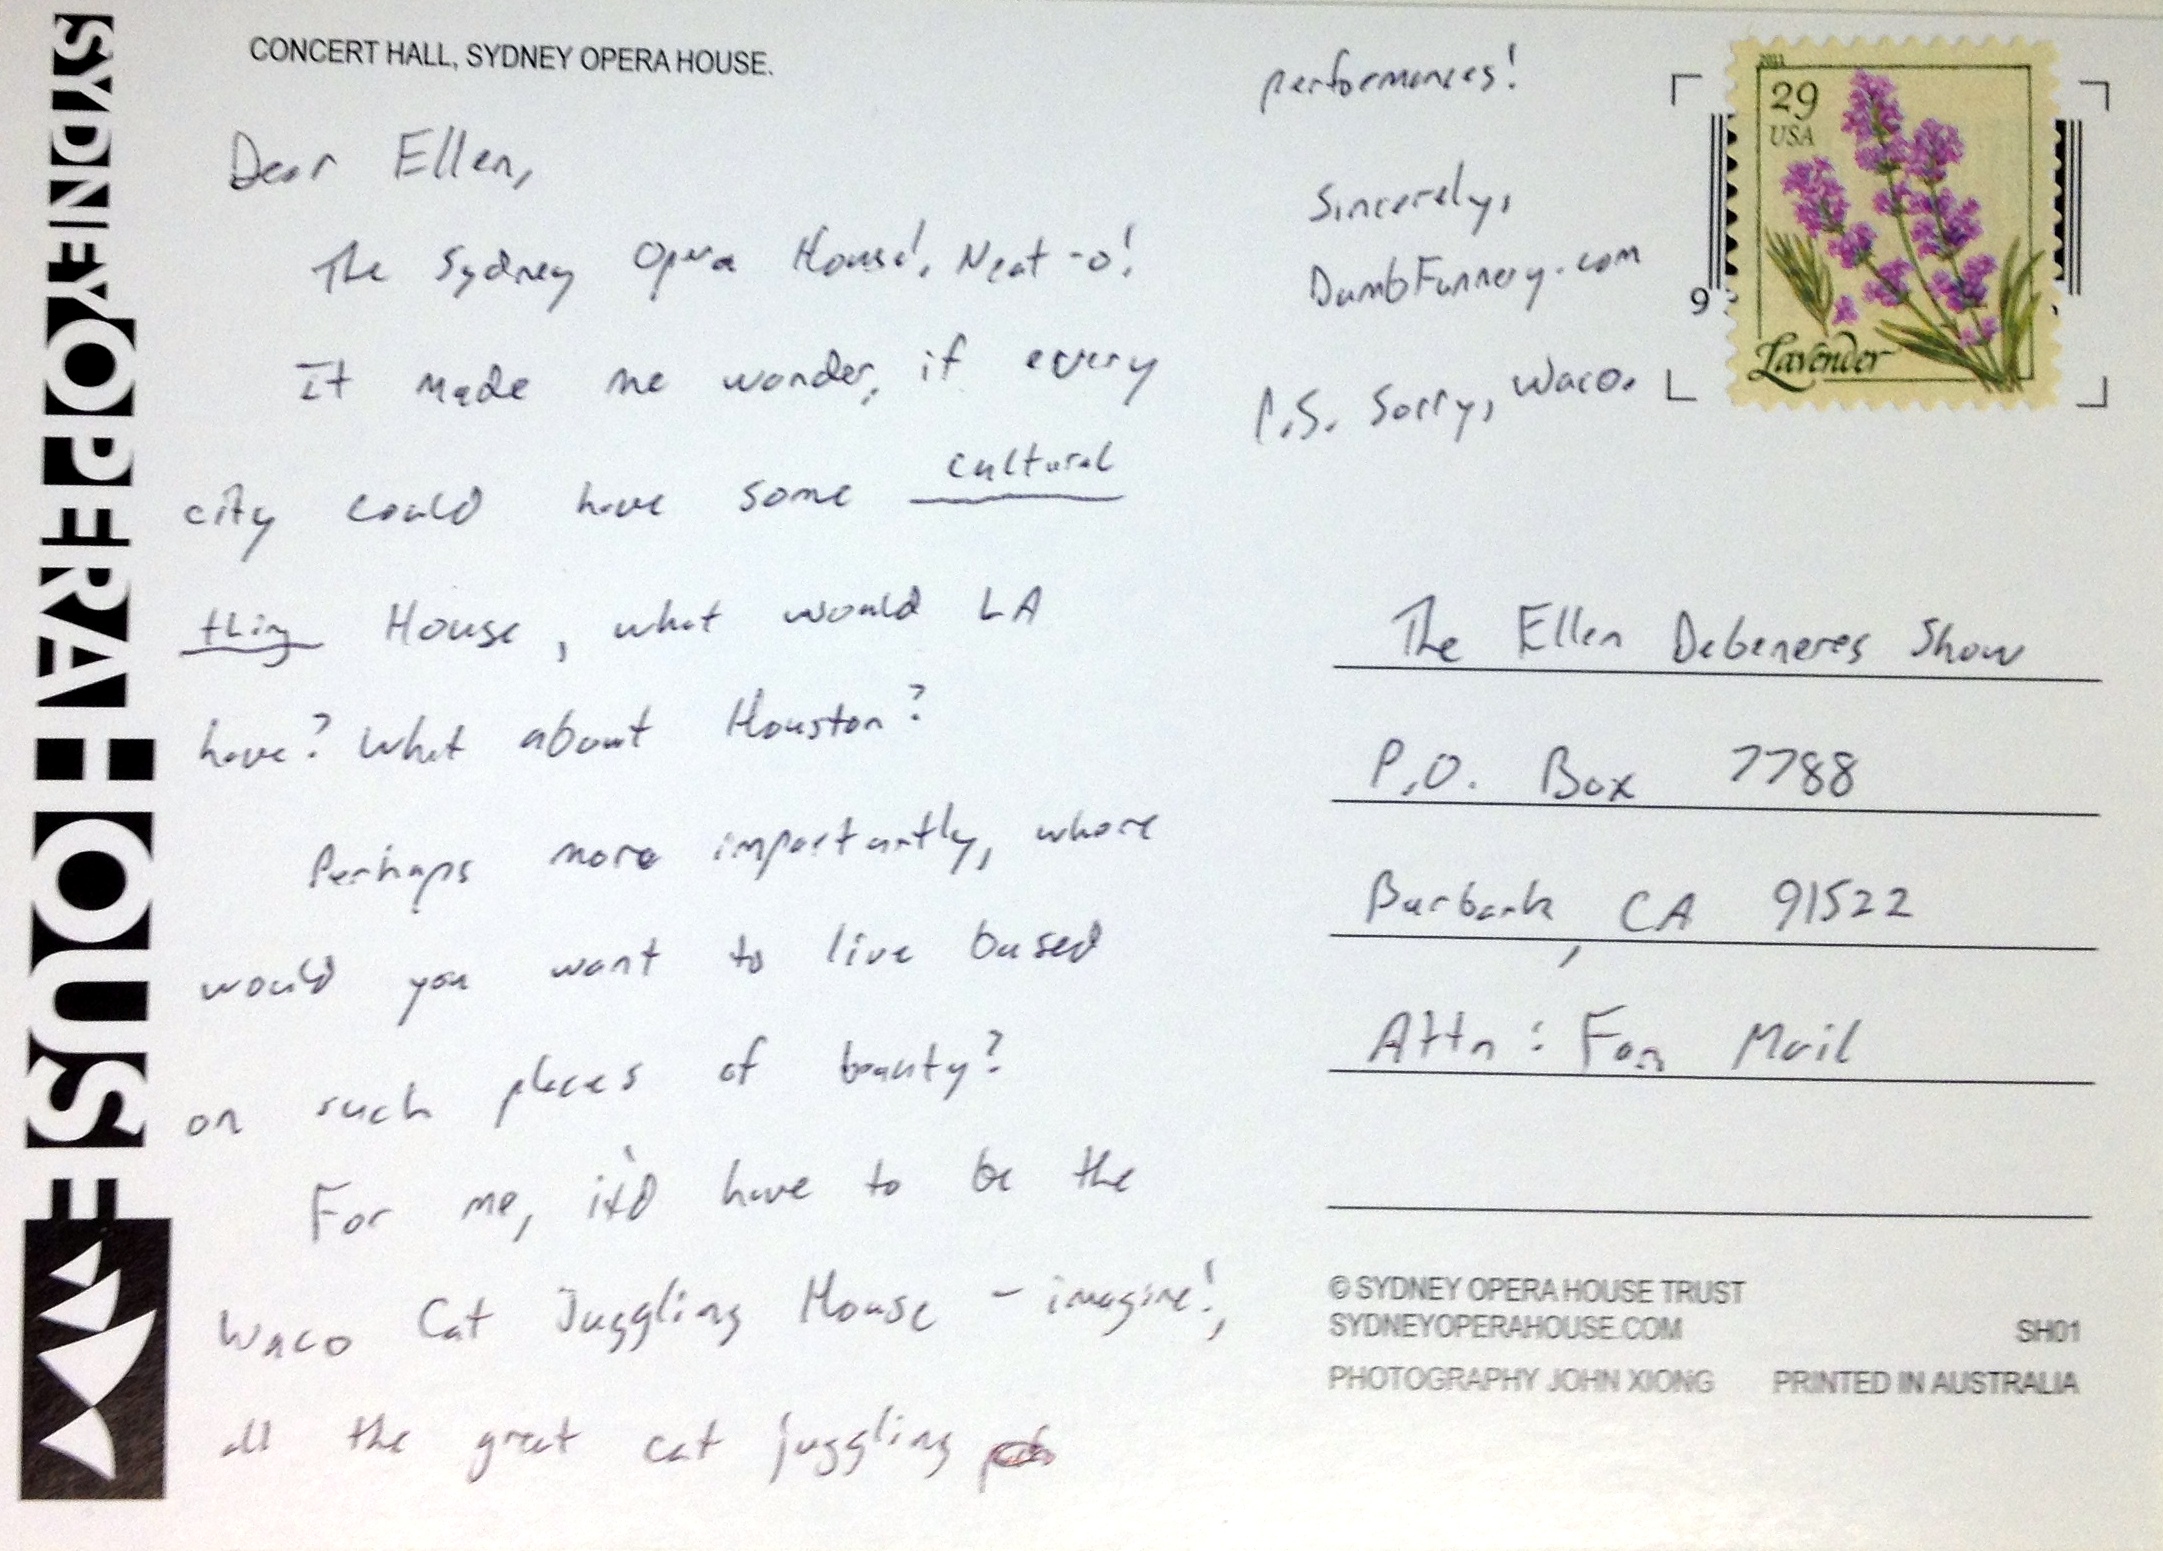 SYDNEY OPERA HOUSE
CONCERT HALL, SYDNEY OPERA HOUSE.
Dear Ellen,
The Sydney Opera House! Neat-o!
It made me wonder, if every
city could have some cultural
thing House, what would LA
have? What about Houston?
Perhaps more importantly, where
would you want to live based
on such places of beauty?
For me, it'd have to be the
Waco Cat Juggling House - imagine!,
all the great cat juggling
performances!
Sincerely,
DumbFunnery.com
P.S. Sorry, Waco.
2011
29
USA
Lavender
9
The Ellen Debeneres Show
P.O. Box 7788
Burbank, CA 91522
Attn: Fan Mail
© SYDNEY OPERA HOUSE TRUST
SYDNEYOPERAHOUSE.COM SH01
PHOTOGRAPHY JOHN XIONG PRINTED IN AUSTRALIA